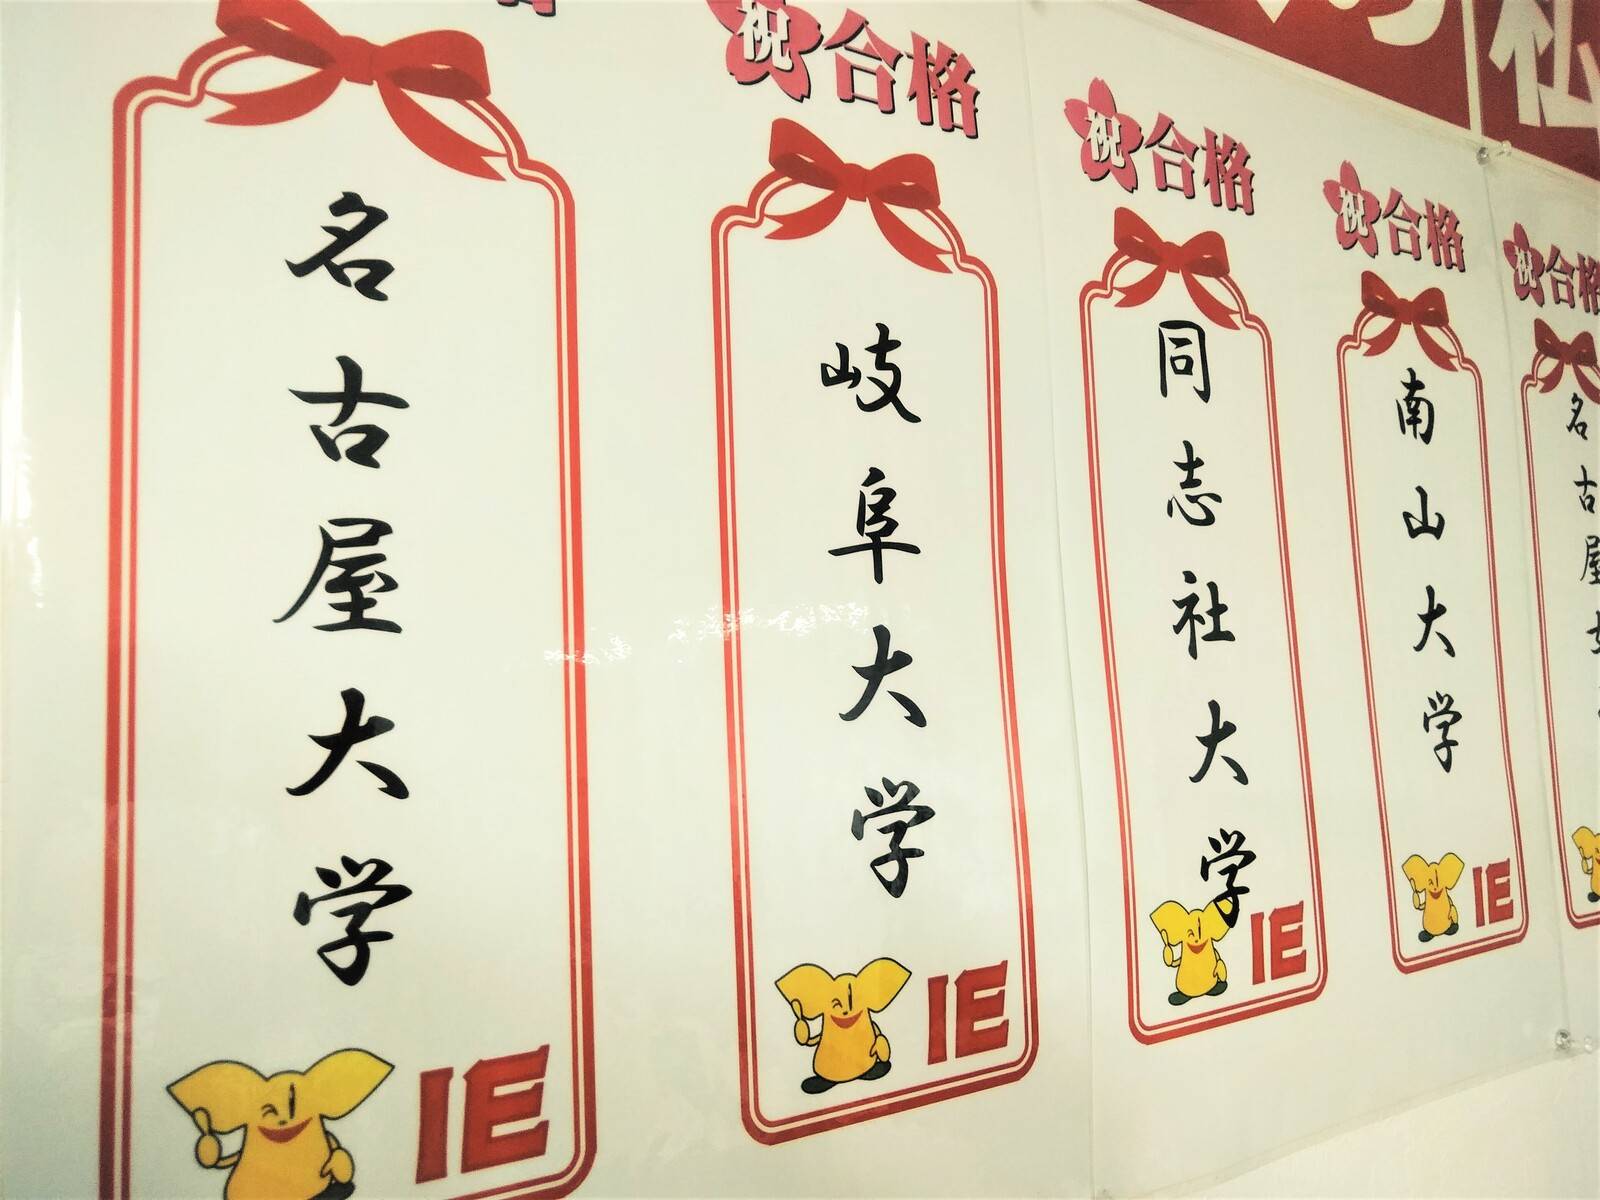 名古屋大学
IE
祝合格
岐阜大学
IE
祝合格
同志社大学
IE
祝合格
南山大学
IE
祝合格
名古屋
私